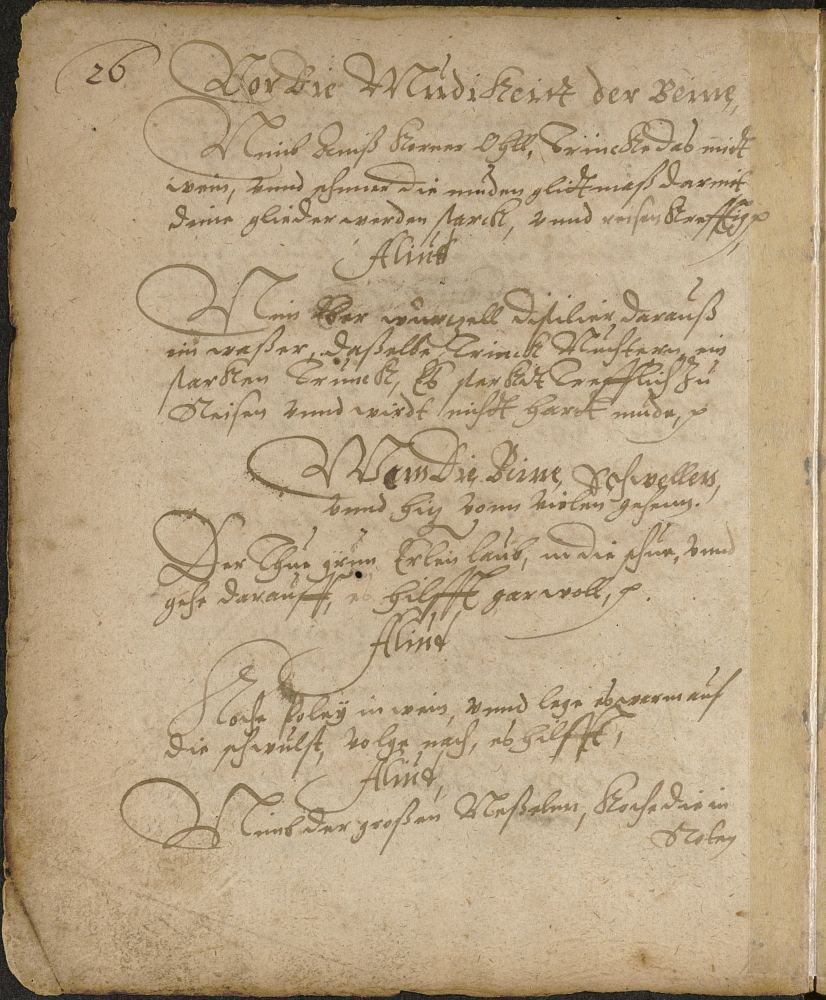 26
Vor die Müdikeitt der Beine,
Nimb Aniß Körner Ohll, Trincke das midt
wein, vnnd schmier die müden glidtmaß darmit
deine glieder werden starck, vnnd reisen kreftig, p
Alind
Nim Eber würtzell distilier darauß
ein waßer, daßelbe Trinck Nüchtern, ein
starken Trunck, Es sterckdt Trefflich zu
Reisen vnnd wirdt nicht hardt müde, p
Wem Die Beine Schwellen,
vnnd hitz vonn vielen gehenn.
Der Thue grün Erlen laub, in die schue, vnnd
gehe darauff, es hilfft gar woll, p.
Alind
Koche Poley in wein, vnnd lege es warm auf
die schwülst, volge nach, es hilfft,
Alind,
Nimb der großen Neßelen, Koche die in
Roten